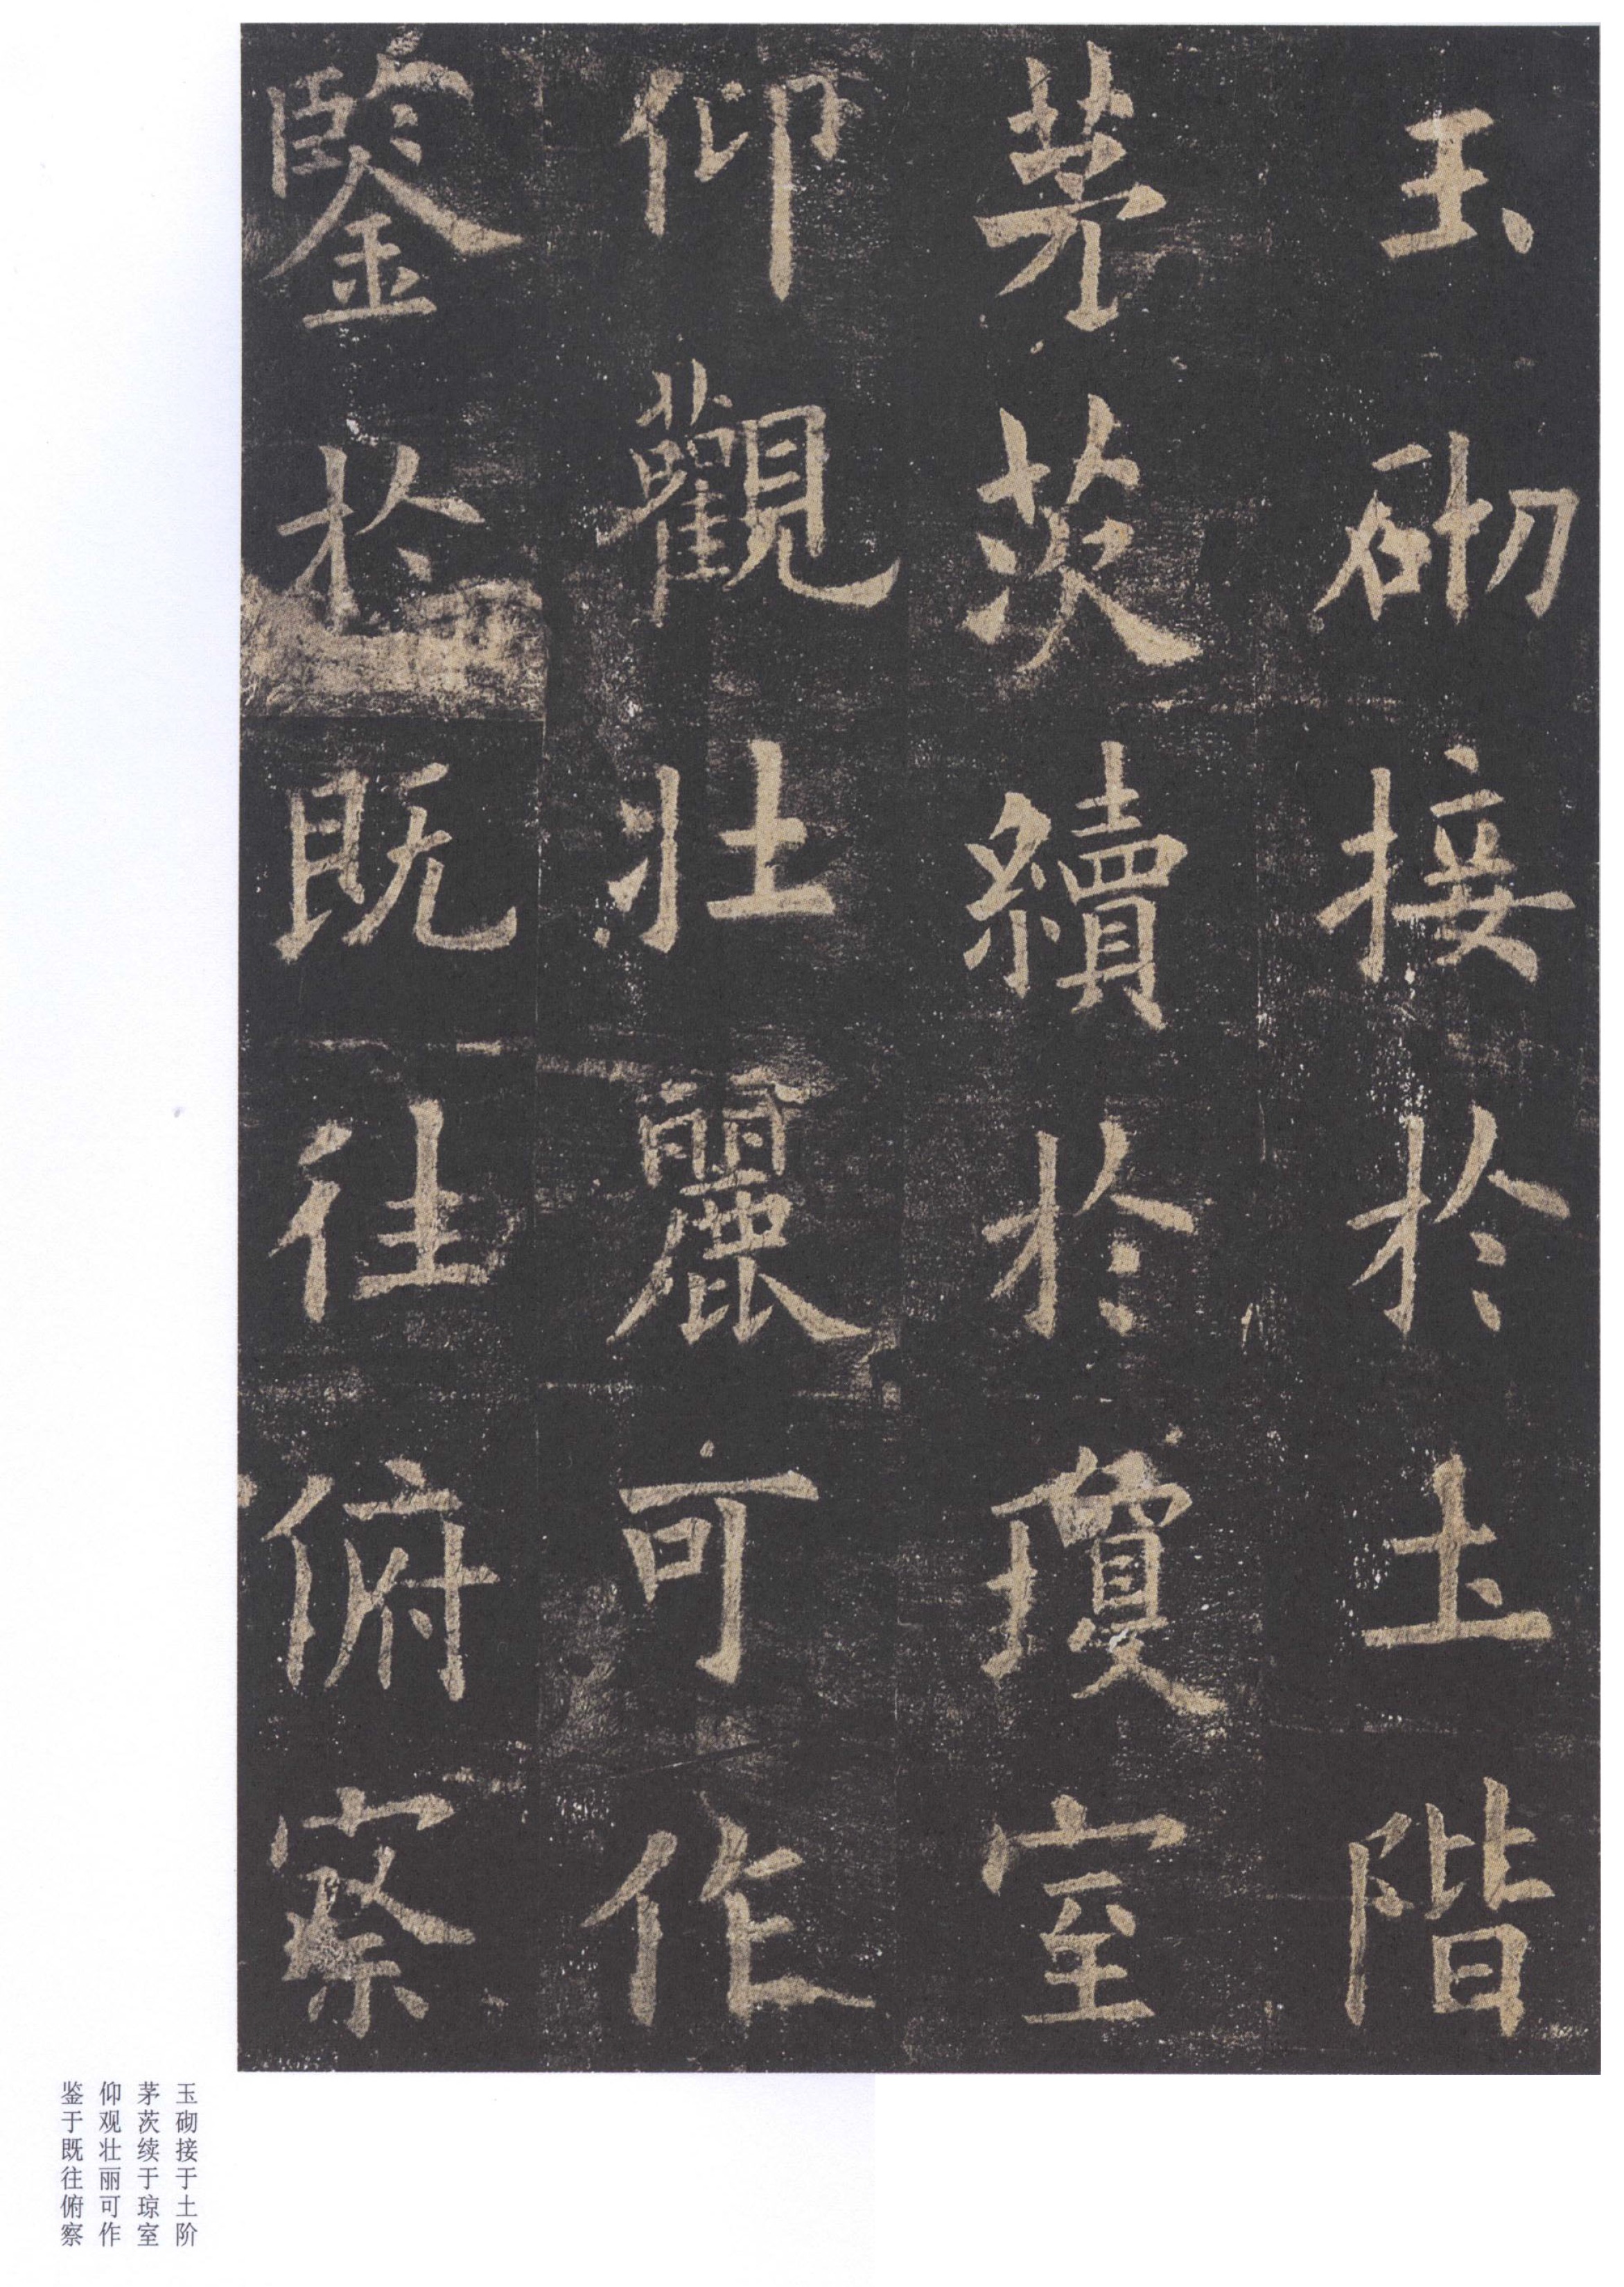 玉砌接於土階
茅茨續於瓊室
仰觀壯麗可作
鑒於既往俯察
玉砌接于土阶
茅茨续于琼室
仰观壮丽可作
鉴于既往俯察